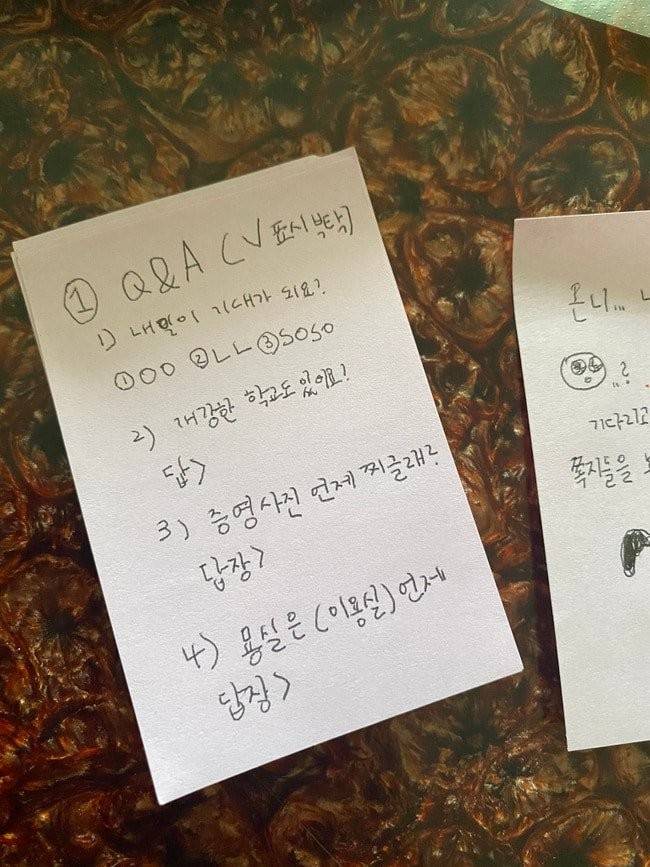 ① Q&A (V 표시 부탁)
1) 내일이 기대가 되요?
①OO ②ㄴㄴ ③SOSO
2) 개강한 학교도 있어요?
답>
3) 증영사진 언제 찌글래?
답장>
4) 용실은 (이용실) 언제
답장>
온니...
..?
기다리고
쪽지들을